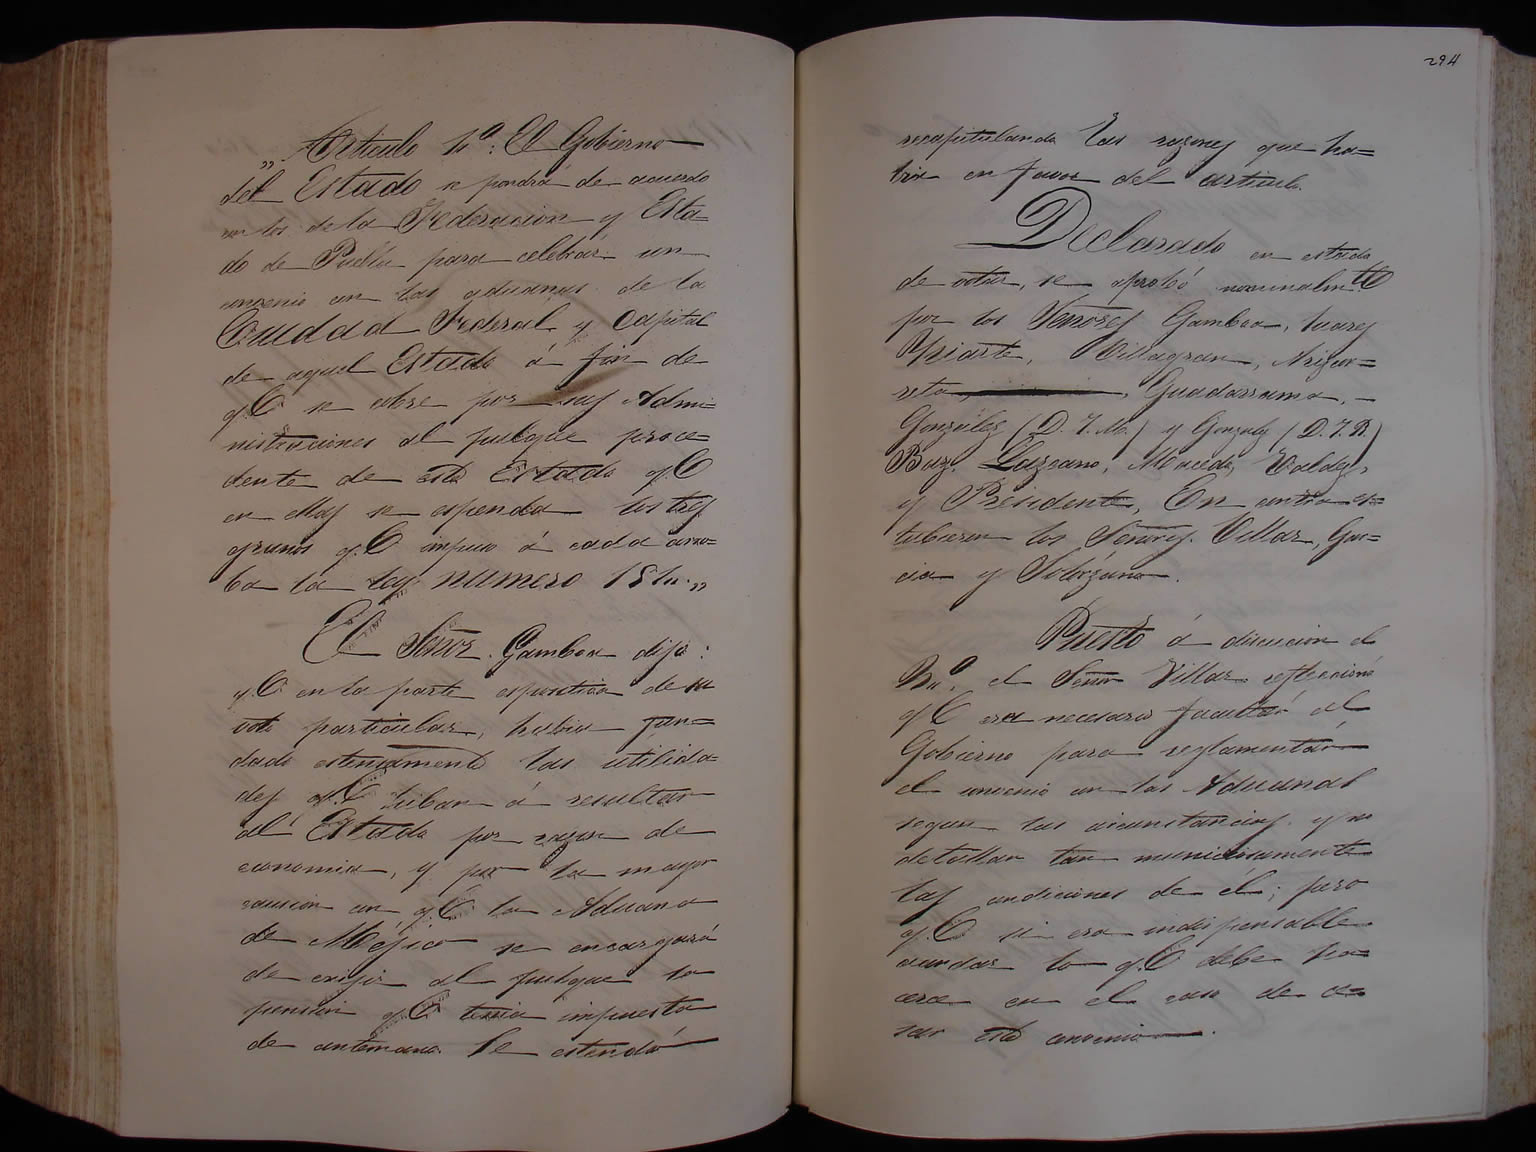 „Articulo 1º: El Gobierno
del Estado se pondrá de acuerdo
con los de la Federacion y Esta=
do de Puebla para celebrar un
convenio con las aduanas de la
Ciudad Federal y Capital
de aquel Estado á fin de
q.e se cobre por sus Admi=
nistraciones al pulque proce=
dente de este Estado q.e
en ellas se espenda los tres
granos q.e impuso á cada arro=
ba la ley numero
El Señor Gamboa dijo:
q.e en la parte espositiva de su
voto particular, habia fun=
dado estensamente las utilida=
des q.e iuban á resultar
al Estado por razon de
economia, y por la mayor
con q.e la Aduana
de Méjico se encargará
de exijir al pulque la
pension q.e tenia impuesta
de antemano. Se estendió
294
recapitulando las razones que ha=
bia en favor del articulo.
Declarado en estado
de votar, se aprobó nominalm.te
por los Señores Gamboa, Suarez
Yriarte, Villagran, Arizcor=
reta, Guadarrama,
Gonzalez (D. J. M.) y Gonzalez (D. J. R.)
Baz, Lazcano, Macedo, Valdez,
y Presidente, En contra es=
tubieron los Señores Villar, Gar=
cia y Solórzano.
Puesto á discucion el
el Señor Villar reflecsionó
q.e era necesario facultar al
Gobierno para reglamentar
el convenio con las Aduanas
segun las circunstancias y no
detallar tan
las condiciones de él; pero
q.e si era indispensable
acordar lo q.e debe ha=
cerse en el caso de ce=
sar este convenio.